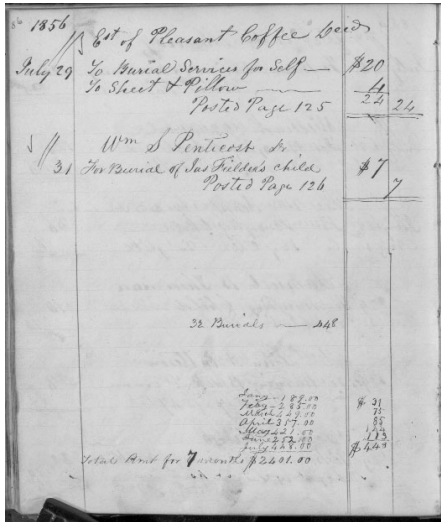 56 1856
Est of Pleasant Coffee Decd
July 29 To Burial Services for Self — $20
To Sheet & Pillow — 4
24 24
Posted Page 125
Wm S Pentecost Jr
31 For Burial of Jas Fielder's child $7
Posted Page 126 7
32 Burials — 448
Jany - 189.00 $ 31
Feby - 285.00 75
March 449.00 85
April 357.00
May 421.00
June 252.00
July 448.00 $448
Total Amt for 7 months $2401.00